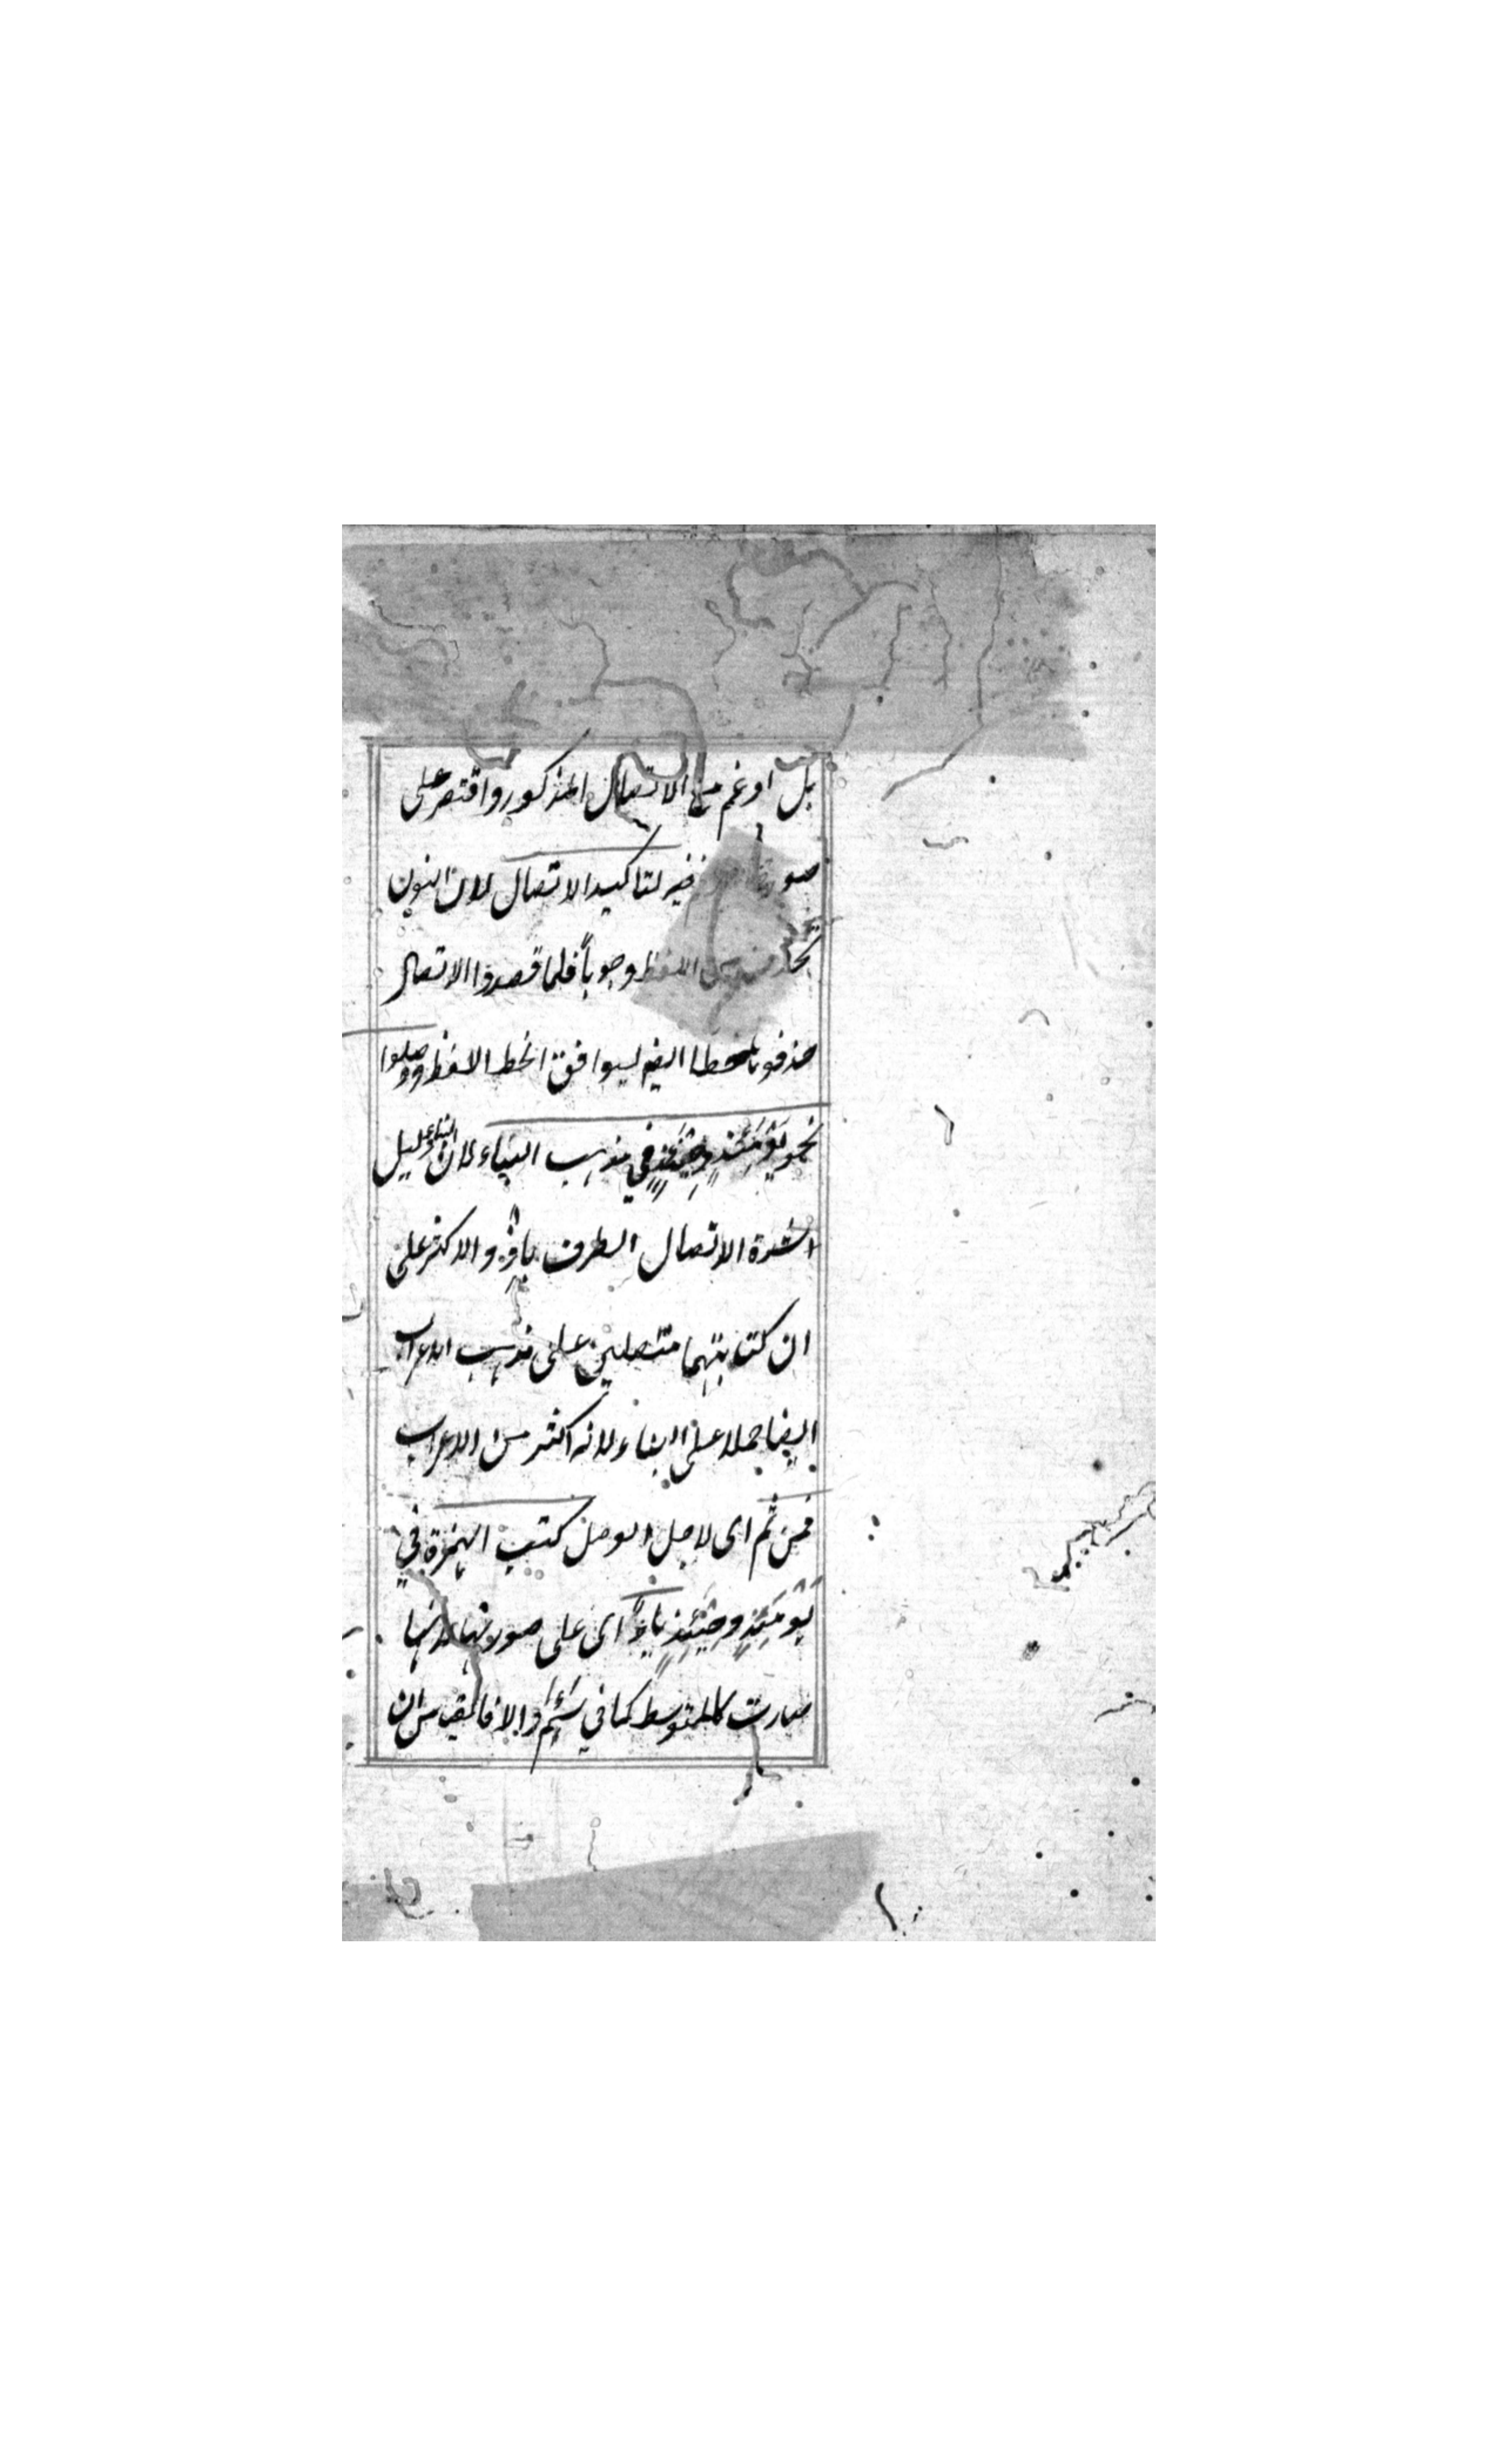 بل ادغم مع الاتصال المذكور واقتصر على
لتاكيد الاتصال لان النون
اللفظ وجوباً فلما قصدوا الاتصال
حذفوها خطا ايضا ليوافق الخط اللفظ ووصلوا
نحو يَوْمَئِذٍ وحِينَئِذٍ في مذهب البناء لان البناء دليل
لشدة الاتصال الظرف باذ والاكثر على
ان كتابتهما متصلين على مذهب الاعراب
ايضا حملا على البناء لانه اكثر من الاعراب
فمن ثم اى لاجل الوصل كتب الهمزة في
يَوْمَئِذٍ وحِينَئِذٍ ياءً اى على صورتها لانها
صارت كالمتوسط كما في سَئِمَ والا فالقياس ان